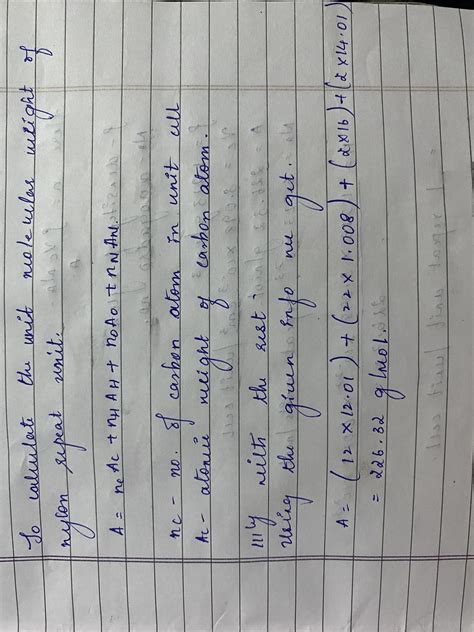 To calculate the unit molecular weight of
nylon repeat unit.
A = nCAC + nHAH + nOAO + nNAN.
nC - no. of carbon atom in unit cell
AC - atomic weight of carbon atom.
111ly with the rest.
Using the given info we get.
A = (12 × 12.01) + (22 × 1.008) + (2×16) + (2×14.01)
= 226.32 g/mol.